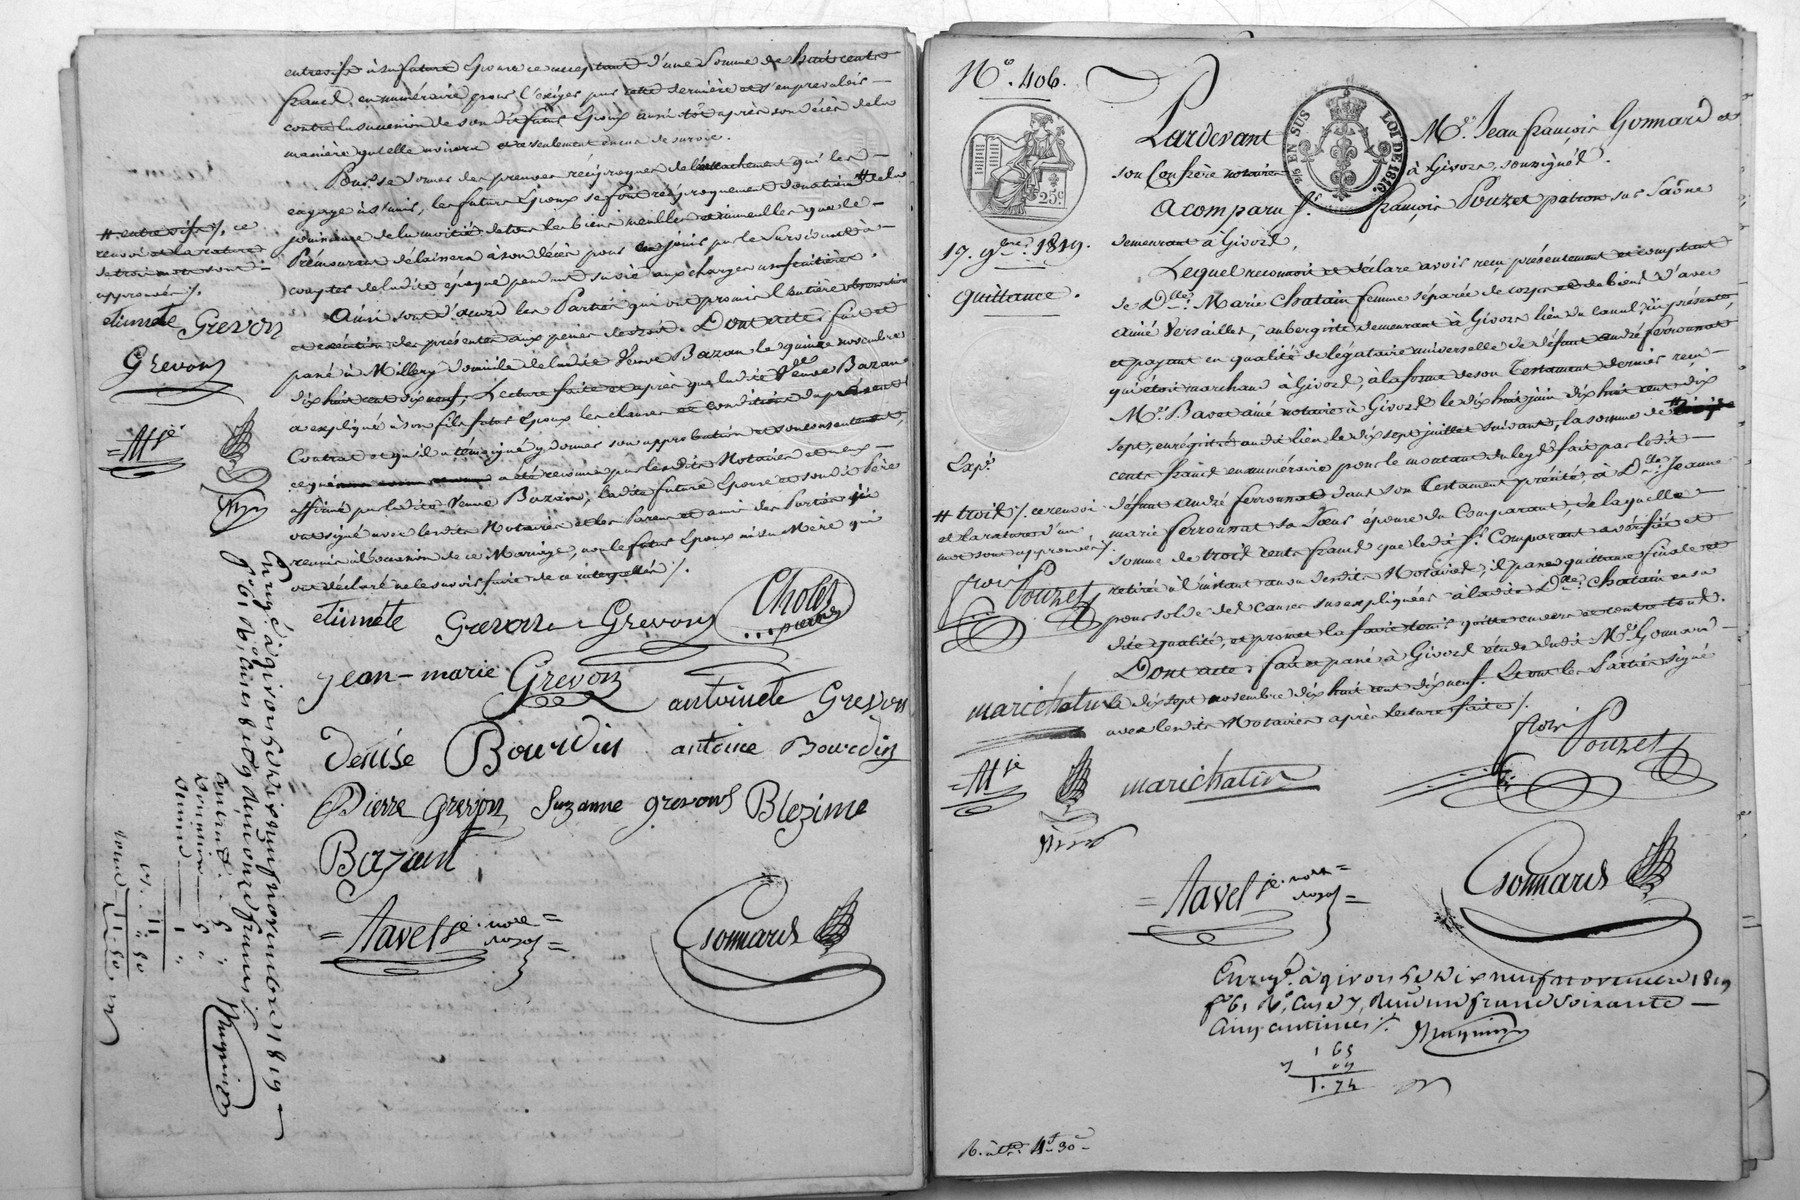 entrevifs à sa future Epouse ce acceptant d'une Somme de huit cents
francs en numéraire pour l'exiger par cette dernière et s'en prevaloir
contre la succession de son dit futur Epoux aussitôt après son décès de la
manière qu'elle avisera et seulement en cas de survie.
Pour se donner des preuves réciproques de l'attachement qui les
engage à s'unir, les futurs Epoux se font réciproquement donation # de la
jouissance de la moitié de tous les biens meubles et immeubles que le
Prémourant délaissera à son décès pour en jouir par le Survivant à
compter de ladite époque pendant sa vie aux charges usufruitières.
Ainsi sont d'accord les Parties qui ont promis l'entière observation
et exécution des présentes aux peines de droit. Dont acte : fait et
passé à Millery domicile de ladite Veuve Bazan le quinze novembre
dix huit cent dix neuf, Lecture faite et après que ladite Veuve Bazan
a expliqué à son fils futur Epoux les clauses et conditions du présent
Contrat et qu'il a témoigné y donner son approbation et consentement,
ce qui a été reconnu par lesdits Notaires et
affirmé par ladite Veuve Bazan, ladite future Epouse et son dit Père
ont signé avec lesdits Notaires et les Parens et amis des Parties
réunis à l'occasion de ce Mariage, non le futur Epoux ni sa Mère qui
ont déclaré ne le savoir faire de ce interpellés ./.
# entrevifs ./. ce
renvoi et la rature
de trois mots sont
approuvés ./.
etiennete Grevon
Grevon
= At je
etiennete Grevon Grevon Cholet
pierre
jean-marie Grevon antoinete Grevon
Denise Bourdin antoine Bourdin
Pierre grevon Suzanne grevon Blezime
Bazant
= Tavel je. nore =
royal =
Gonnard
Enregé à givors le dix neuf novembre 1819
fo 61 Ro, Cases 8 et 9
N° 406.
25c
25 EN SUS
LOI DE 1816
17. 9bre 1819.
Quittance.
Expé
Pardevant Me. Jean françois Gonnard et
son Confrère notaires à Givors, soussignés.
A comparu Sr. françois Pouzet patron sur Saône
demeurant à Givors,
Lequel reconnoit et déclare avoir reçu présentement et comptant
de Dlle. Marie Chatain femme séparée de corps et de biens d'avec
aimé Versailles, aubergiste demeurant à Givors lieu du canal, ici présente,
et payant en qualité de légataire universelle de défunt andré ferronnat
qui étoit marchand à Givors, à la forme de son Testament dernier reçu
Me. Bavet ainé notaire à Givors le dix huit juin dix huit cent dix
sept, enregistré audit lieu le dix sept juillet suivant, la somme de #
cents francs en numéraire pour le montant du legs fait par ledit
défunt andré ferronnat dans son Testament précité, à Dlle. Jeanne
marie ferronnat sa Sœur épouse du Comparant, de laquelle
somme de trois cents francs que ledit Sr. Comparant a vérifiée et
retirée à l'instant au vu desdits Notaires, il passe quittance finale et
pour solde des causes susexpliquées à ladite Dlle. Chatain en sa
dite qualité, et promet la faire tenir quitte envers et contre tous.
Dont acte : fait et passé à Givors étude dudit Me. Gonnard
le dix sept novembre dix huit cent dix neuf. Et ont les Parties signé
avec lesdits Notaires après lecture faite ./.
# trois ./. ce renvoi
et la rature d'un
mot sont approuvés ./.
frois Pouzet
marichatin
= At je
marichatin
frois Pouzet
= Tavel je. nore =
royal =
Gonnard
Enregé. à givors le dix neuf novembre 1819
fo 61 Ro, Case 7, Reçu un franc soixante
cinq centimes ./.
1 65
1. 74